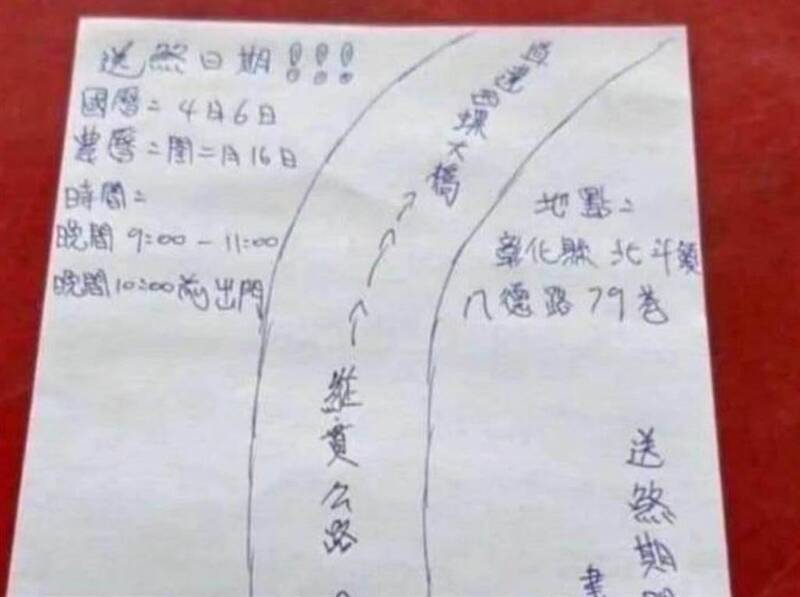 送煞日期!!!
國曆：4月6日
農曆：閏二月16日
時間：
晚間 9:00 - 11:00
晚間10:00前出門
直達西螺大橋
縱貫公路
地點：
彰化縣 北斗鎮
八德路79巷
送煞期間